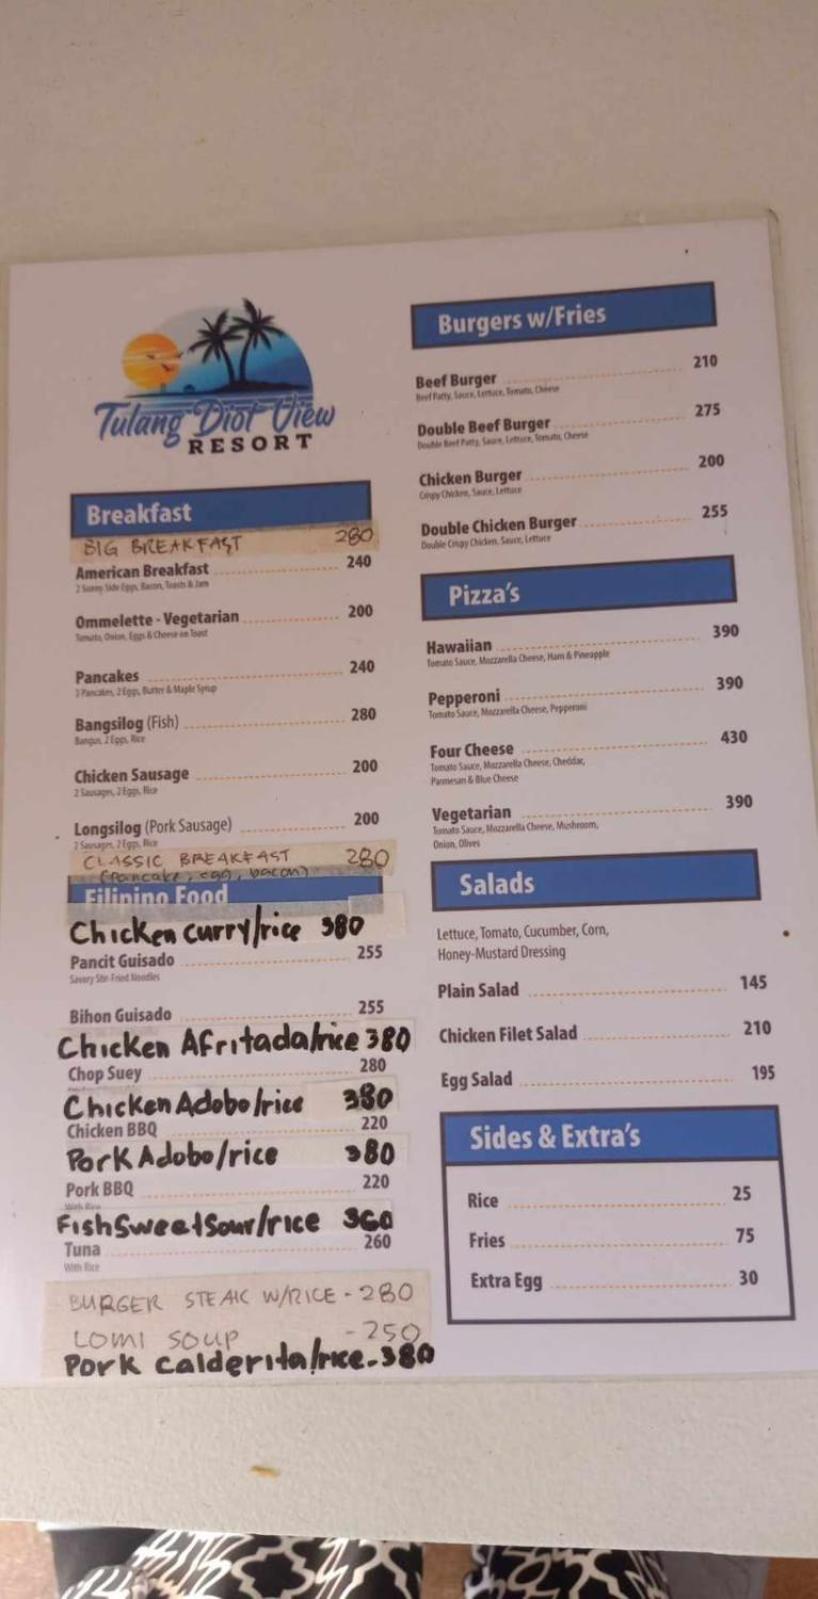 Tulang Diot View
RESORT
Breakfast
BIG BREAKFAST 280
American Breakfast 240
2 Sunny Side Eggs, Bacon, Toasts & Jam
Ommelette - Vegetarian 200
Tomato, Onion, Eggs & Cheese on Toast
Pancakes 240
2 Eggs, Butter & Maple Syrup
Bangsilog (Fish) 280
Bangus, 2 Eggs, Rice
Chicken Sausage 200
2 Sausages, 2 Eggs, Rice
Longsilog (Pork Sausage) 200
2 Sausages, 2 Eggs, Rice
CLASSIC BREAKFAST 280
(pancake, egg, bacon)
Filipino Food
Chicken curry/rice 380
Pancit Guisado 255
Savory Stir-Fried Noodles
Bihon Guisado 255
Chicken Afritada/rice 380
Chop Suey 280
Chicken Adobo/rice 380
Chicken BBQ 220
Pork Adobo/rice 380
Pork BBQ 220
With Rice
Fish Sweet Sour/rice 360
Tuna 260
With Rice
BURGER STEAK W/RICE - 280
LOMI SOUP - 250
Pork calderita/rice - 380
Burgers w/Fries
Beef Burger 210
Beef Patty, Sauce, Lettuce, Tomato, Cheese
Double Beef Burger 275
Double Beef Patty, Sauce, Lettuce, Tomato, Cheese
Chicken Burger 200
Crispy Chicken, Sauce, Lettuce
Double Chicken Burger 255
Double Crispy Chicken, Sauce, Lettuce
Pizza's
Hawaiian 390
Tomato Sauce, Mozzarella Cheese, Ham & Pineapple
Pepperoni 390
Tomato Sauce, Mozzarella Cheese, Pepperoni
Four Cheese 430
Tomato Sauce, Mozzarella Cheese, Cheddar,
Parmesan & Blue Cheese
Vegetarian 390
Tomato Sauce, Mozzarella Cheese, Mushroom,
Onion, Olives
Salads
Lettuce, Tomato, Cucumber, Corn,
Honey-Mustard Dressing
Plain Salad 145
Chicken Filet Salad 210
Egg Salad 195
Sides & Extra's
Rice 25
Fries 75
Extra Egg 30